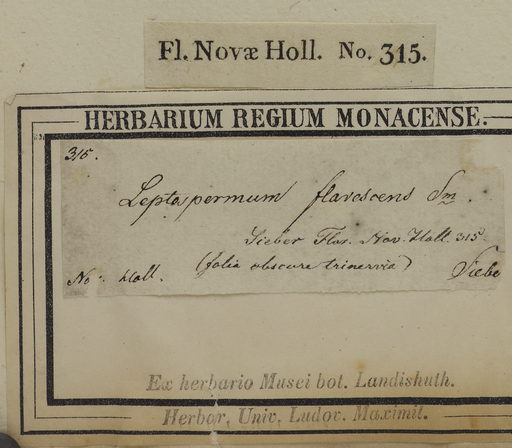 Fl. Novæ Holl. No. 315.
HERBARIUM REGIUM MONACENSE.
315.
Leptospermum flavescens Sm.
Sieber Flor. Nov. Holl. 315.
(folia obscure trinervia)
No. Holl. Siebe
Ex herbario Musei bot. Landishuth.
Herbar. Univ. Ludov. Maximil.